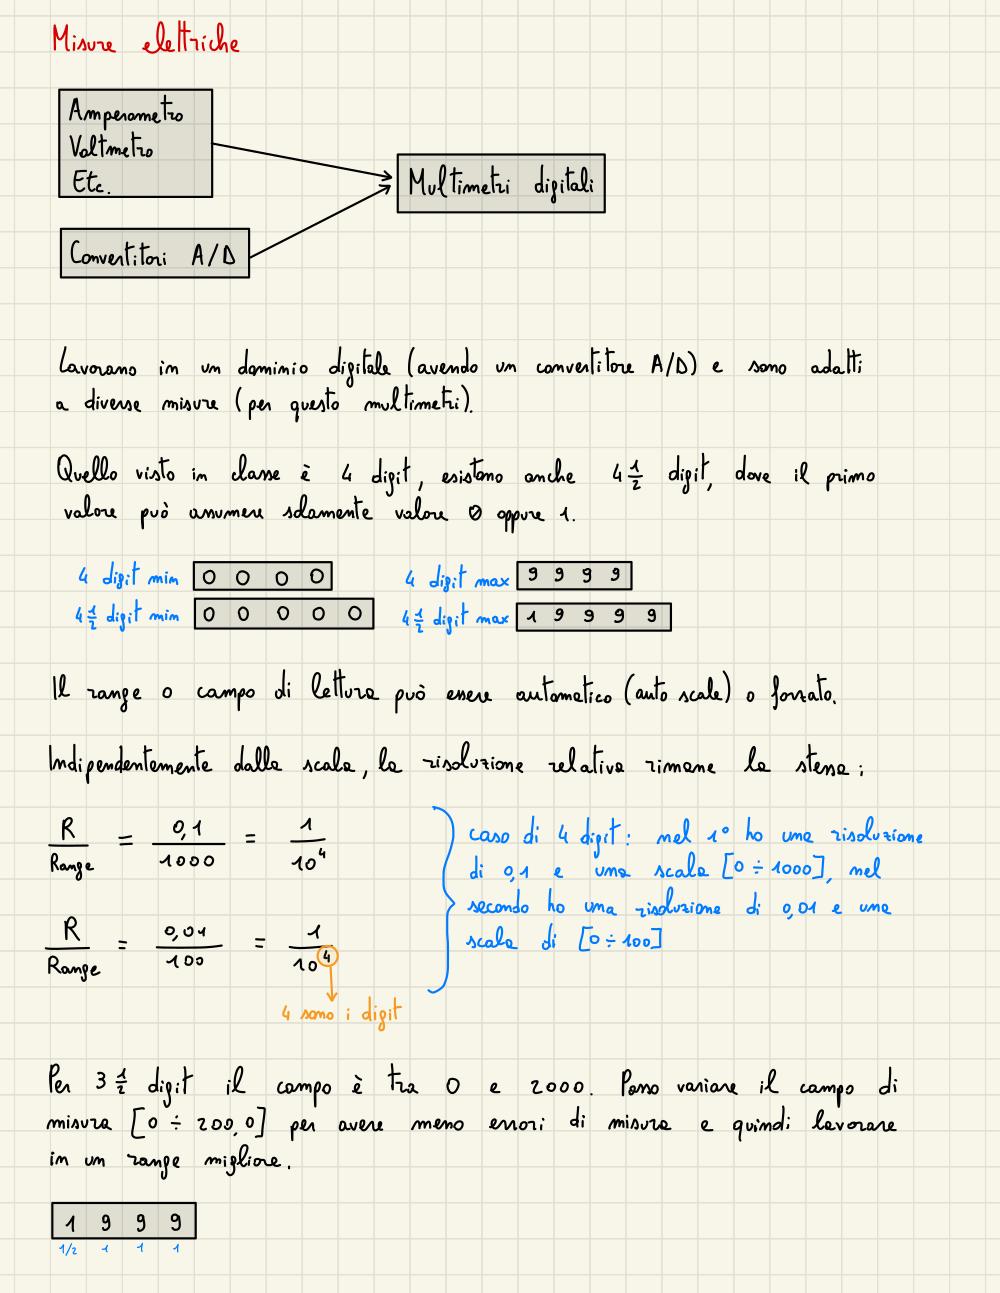 Misure elettriche
Amperometro
Voltmetro
Etc.
Multimetri digitali
Convertitori A/D
Lavorano in un dominio digitale (avendo un convertitore A/D) e sono adatti
a diverse misure (per questo multimetri).
Quello visto in classe è 4 digit, esistono anche 4 1/2 digit, dove il primo
valore può assumere solamente valore 0 oppure 1.
4 digit min 0 0 0 0 4 digit max 9 9 9 9
4 1/2 digit min 0 0 0 0 0 4 1/2 digit max 1 9 9 9 9
Il range o campo di lettura può essere automatico (auto scale) o forzato.
Indipendentemente dalla scala, la risoluzione relativa rimane la stessa:
R/Range = 0,1/1000 = 1/10^4
caso di 4 digit: nel 1° ho una risoluzione
di 0,1 e una scala [0 ÷ 1000], nel
secondo ho una risoluzione di 0,01 e una
scala di [0 ÷ 100]
R/Range = 0,01/100 = 1/10^4
4 sono i digit
Per 3 1/2 digit il campo è tra 0 e 2000. Posso variare il campo di
misura [0 ÷ 200,0] per avere meno errori di misura e quindi lavorare
in un range migliore.
1 9 9 9
1/2 1 1 1